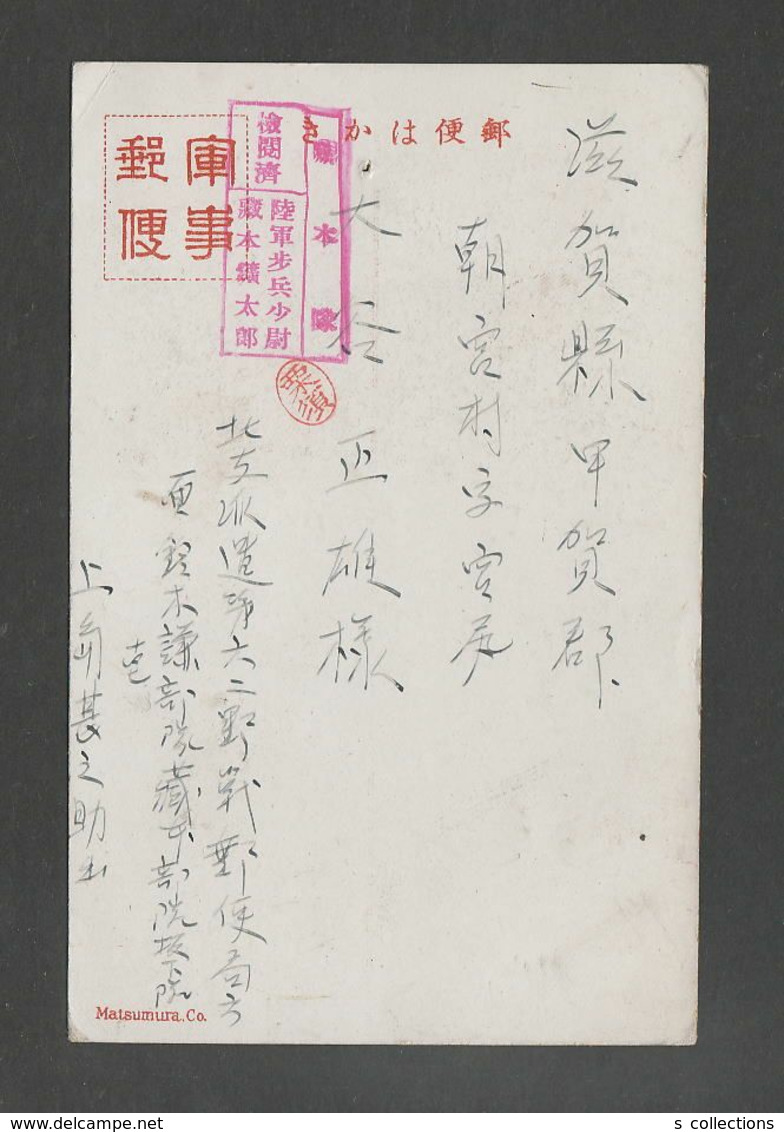 郵便はかき
軍事
郵便
檢閲濟
藏本隊
陸軍步兵少尉
藏本鑛太郎
滋賀縣甲賀郡
朝宮村字宮尻
大谷正雄様
北支派遣第六二野戰郵便局六
鈴木謙部隊藏本部隊坂下隊
上甚之助出
Matsumura.Co.
s collections